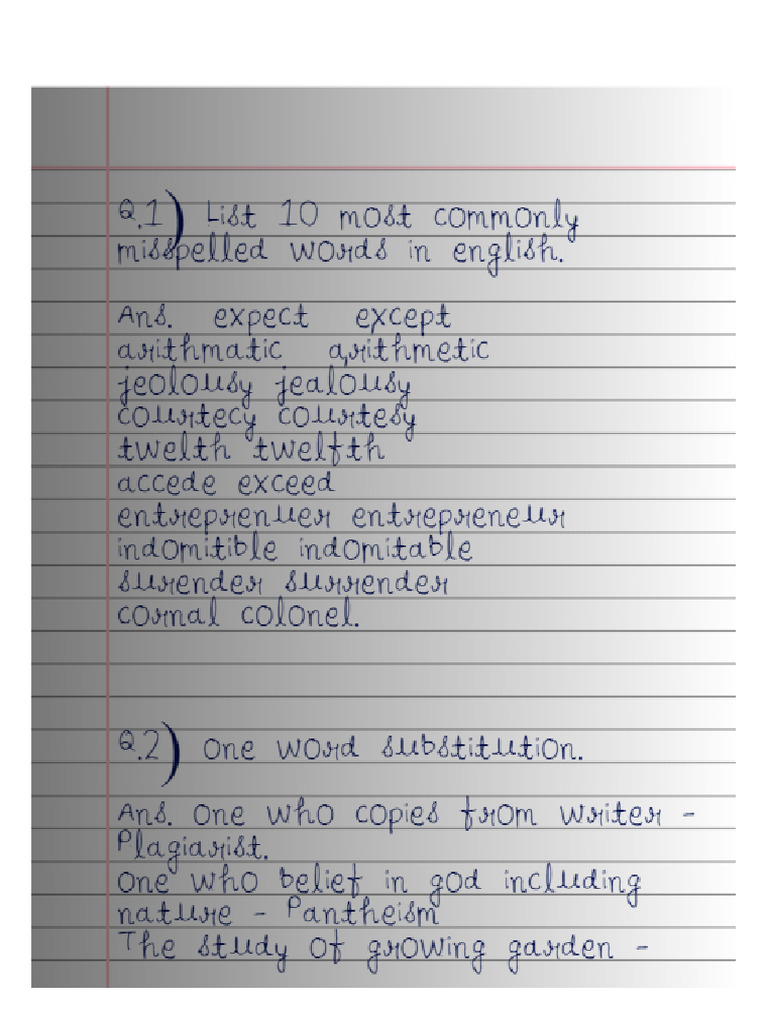 Q.1) List 10 most commonly
misspelled words in english.
Ans. expect except
arithmatic arithmetic
jeolousy jealousy
courtecy courtesy
twelth twelfth
accede exceed
entreprenuer entrepreneur
indomitible indomitable
surender surrender
cornal colonel.
Q.2) One word substitution.
Ans. One who copies from writer -
Plagiarist.
One who belief in god including
nature - Pantheism
The study of growing garden -